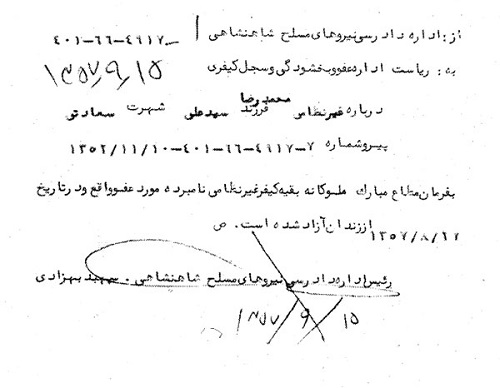 از: اداره دادرسی نیروهای مسلح شاهنشاهی / ــ۴۹۱۷-۶۶-۴۰۱
به: ریاست اداره عفو و بخشودگی و سجل کیفری
۱۳۵۷/۹/۱۵
درباره غیرنظامی محمدرضا فرزند سیدعلی شهرت سعادتی
پیرو شماره ۷-۴۹۱۷-۶۶-۴۰۱-۱۳۵۲/۱۱/۱۰
بفرمان مطاع مبارک ملوکانه بقیه کیفر غیرنظامی نامبرده مورد عفو واقع و در تاریخ
از زندان آزاد شده است. ص
رئیس اداره دادرسی نیروهای مسلح شاهنشاهی. سپهبد بهزادی
۱۳۵۷/۹/۱۵